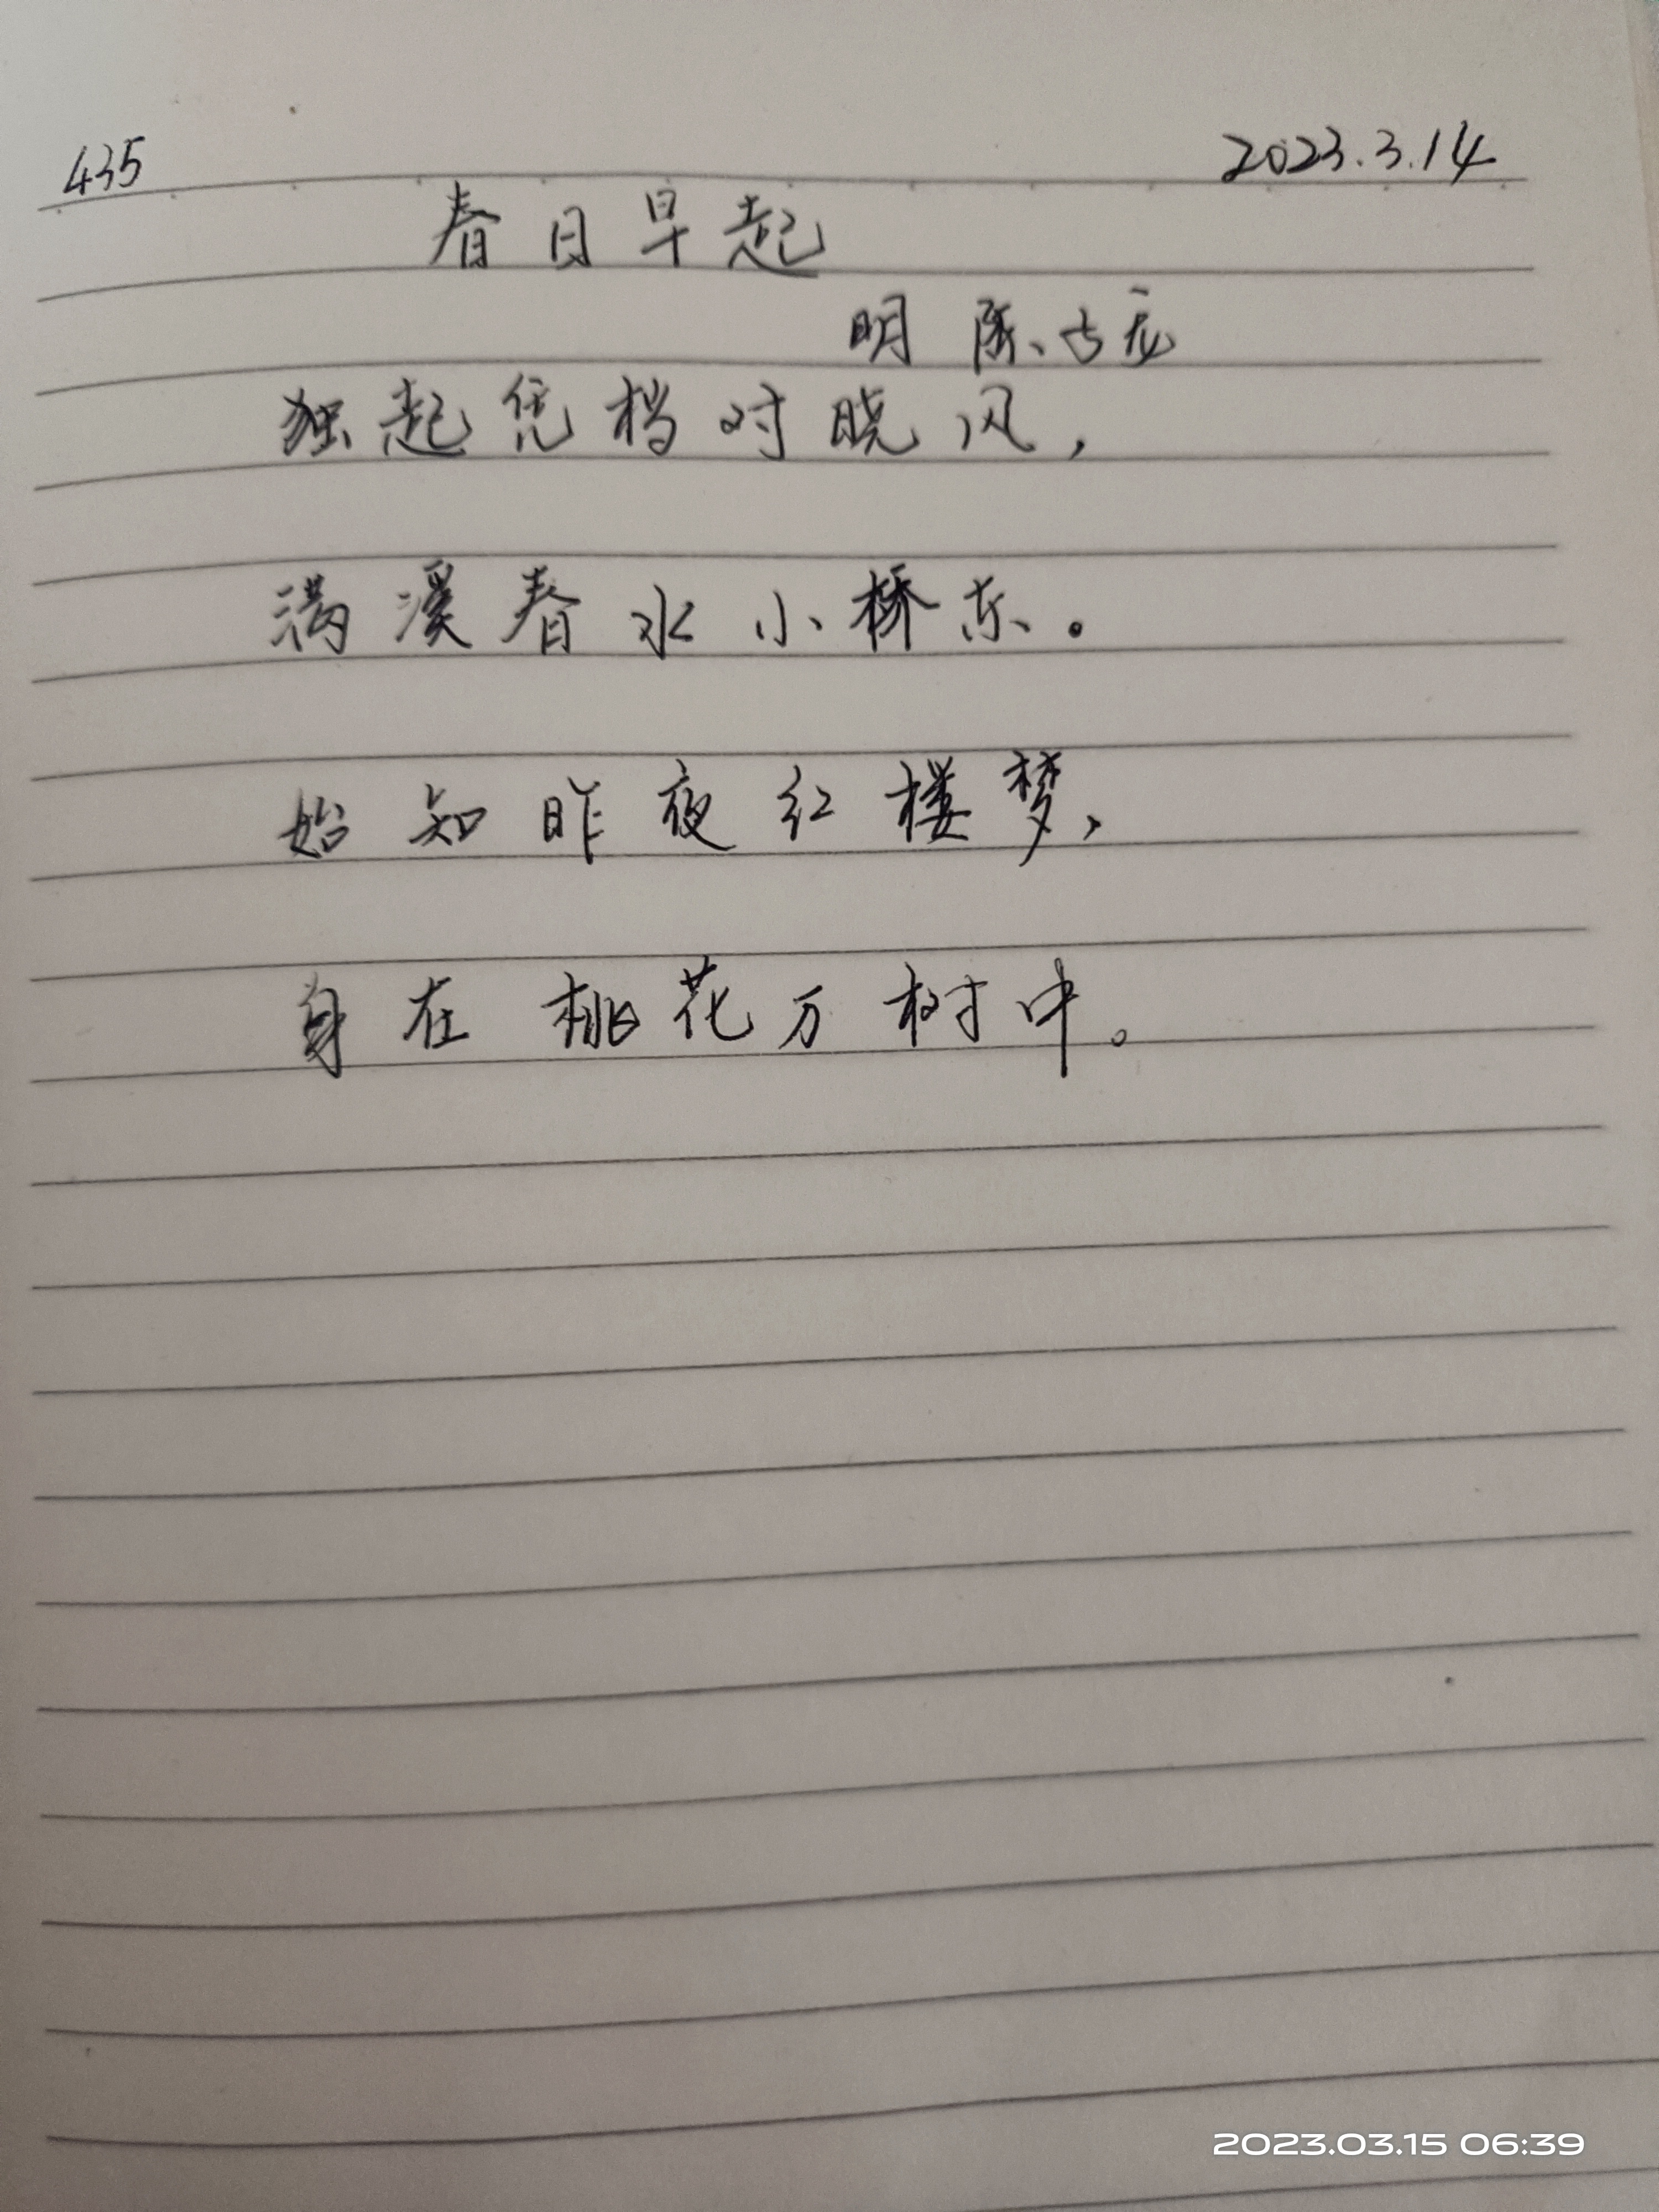 435 2023.3.14
春日早起
明 陈
独起凭档对晓风，
满溪春水小桥东。
始知昨夜红楼梦，
身在桃花万树中。
2023.03.15 06:39